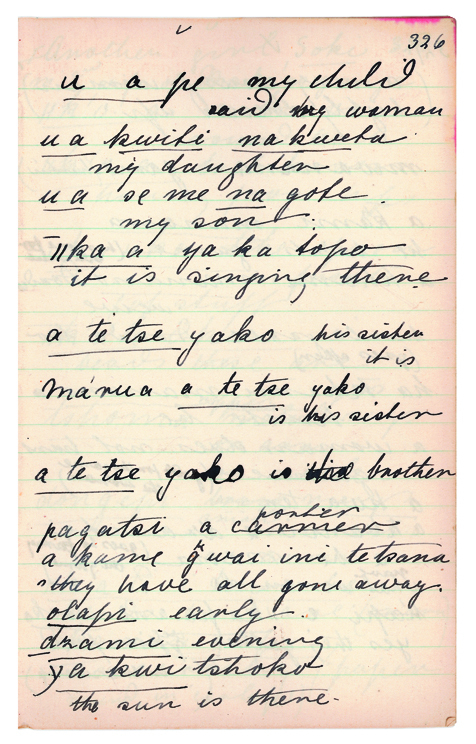 326
u a pe my child
said by woman
u a kwibi na kweta
my daughter
u a se me na gote
my son.
ǁka a ya ka topo
it is singing there
a te tse yako his sister
it is
márua a te tse yako
is his sister
a te tse yako is brother
porter
pagatsi a carrier
a kame g̃wai ini tetsana
they have all gone away.
olapi early
dzami evening
ya kwi tshoko
the sun is there.